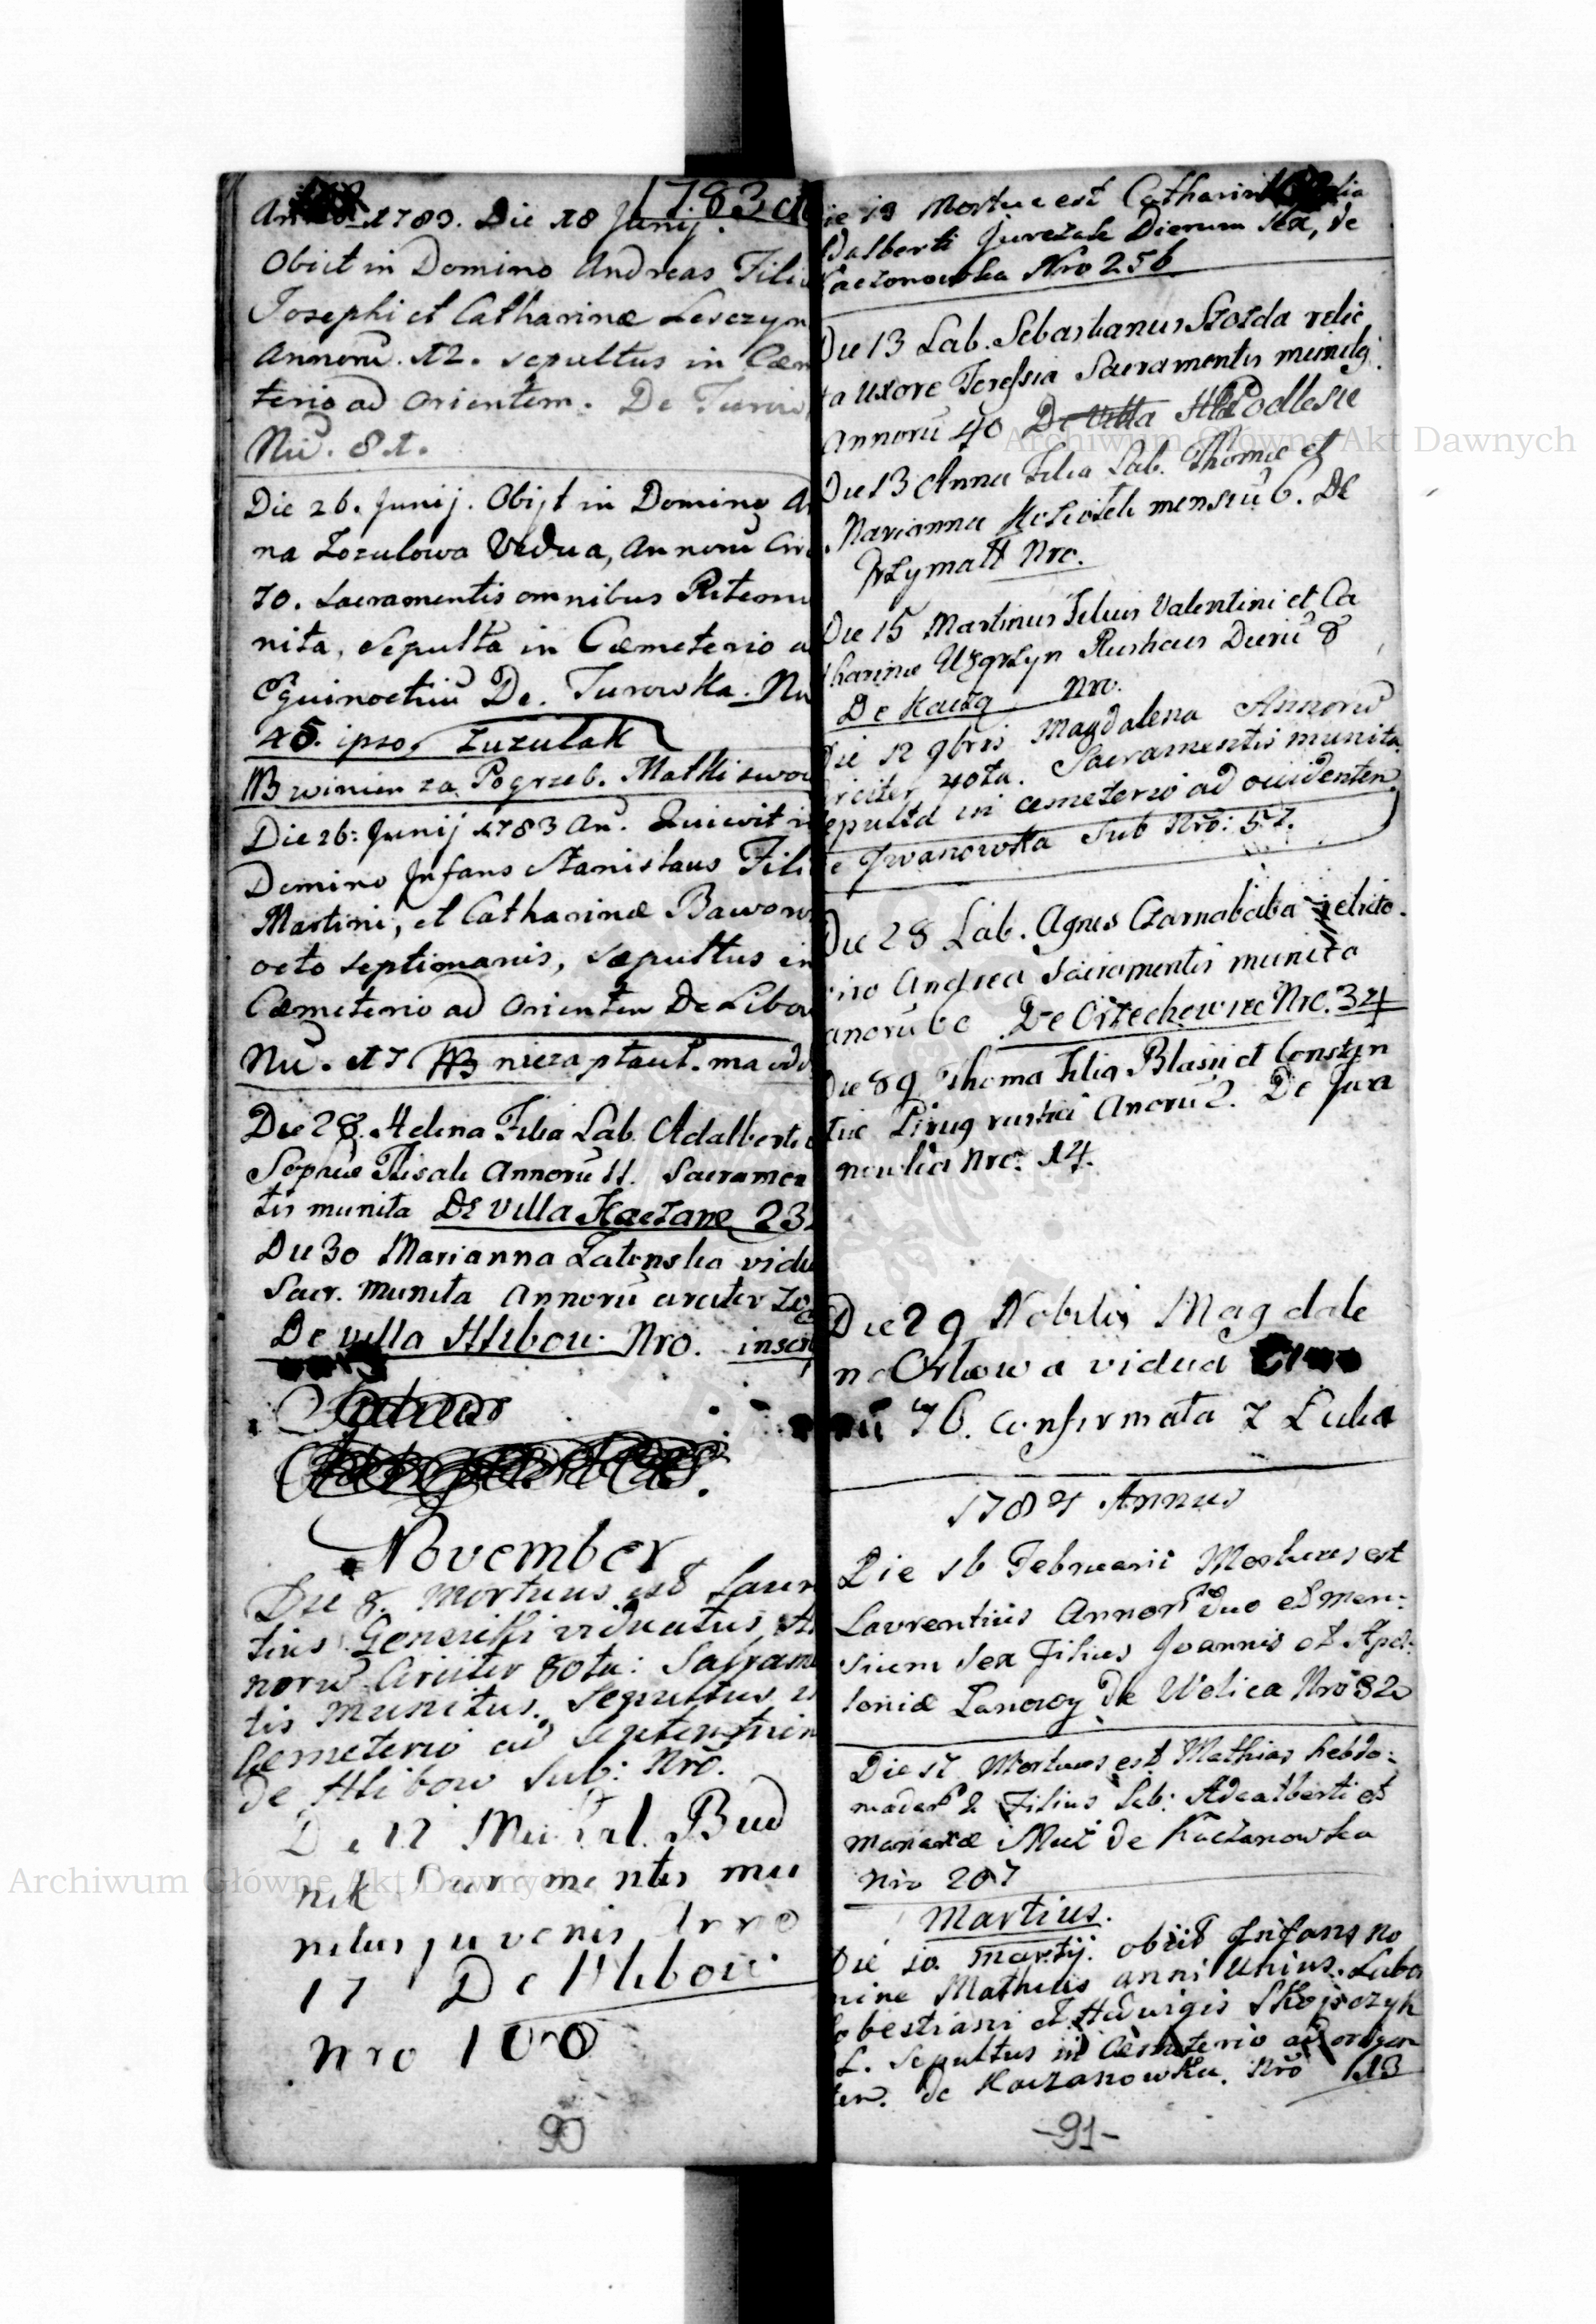 1783
Anno 1783. Die 18 Junij.
Obiit in Domino Andreas Filiu
Josephi et Catharinæ Lesczyn
Annorū. 12. sepultus in Cæm
terio ad orientem. De Turow
Nū. 81.
Die 26. Junij. Obijt in Domino An
na Zozulowa Vidua, Annorū Circ
70. Sacramentis omnibus Rite mu
nita, Sepulta in Cæmeterio a
Equinoctiū De. Turowka. Nu
45. ipso. Zuzulak
NB winien za Pogrzeb. Matki swoi
Die 26: Junij 1783 An. Quievit i
Domino Infans Stanislaus Filiu
Martini, et Catharinæ Bawor
octo septimanis, sæpultus in
Cæmeterio ad Orientem De Libow
Nū. 17 NB niezapłacił. ma od
Die 28. Helena Filia Lab. Adalberti
Sophiæ annorū 11. Sacramen
tis munita De Villa Kaczano 23
Die 30 Marianna Tatenska vidu
Sacr. munita Annorū circiter 70
De villa Hlibow Nro. inscr
November
Die 8. Mortuus est Lauren
tius viduatus, An
norū Circiter 80ta: Sacrame
tis munitus. Sepultus i
Cemeterio ad Septentrion
de Hlibow Sub: Nrō.
Die 12 Michal Bud
nik Sacramentis mu
nitus juvenis Anno
17 De Hlibow
Nro 100
90
ie 19 Mortua est Catharina Filia
Adalberti Jurczak Dierum sex, de
Kaczanowka Nro 256
Die 13 Lab. Sebastianus Szozda relic
ta uxore Teressia Sacramentis munitg
Annorū 40 Podlesie
Die 13 Anna Filia Lab. Thomæ et
Marianna mensiū 6. De
Przymall Nro.
Die 15 Martinus Filius Valentini et Ca
tharinæ Wegrzyn Rusticus Dierū 8
De Nro.
Die 12 9bris Magdalena Annorū
circiter 40ta. Sacramentis munita
Sepulta in cemeterio ad occidentem
e Jwanowka Sub Nrō: 57.
Die 28 Lab. Agnes Czarnobaba relicto
viro Andrea Sacramentis munita
anorū 60 De Orzechowiec Nro. 34
Die 89 Thoma Filia Blasii et Constan
tiæ Pirug rustici Anorū 2. De Jwa
nowka Nro. 14.
Die 29 Nobilis Magdale
na Orłowa vidua
76. confirmata z Luka
1784 Annus
Die 16 Februarii Mortuus est
Laurentius Annorū duo et men:
sium sex Filius Joannis et Apol:
loniæ Lanowy de Wolica Nrō 82
Die 17 Mortuus est Mathias hebdo:
madar 2 Filius Lab: Adealberti et
Mariannæ de Kaczanowka
Nro 207
Martius.
Die 10 Martij. obiit Infans no
mine Mathias anni Unius. Labo
Sebestiani et Hedwigis Skopczyk
L. Sepultus in Cæmeterio ad orien
tem. de Kaczanowka. Nrō 113
-91-
Archiwum Główne Akt Dawnych
Archiwum Główne Akt Dawnych